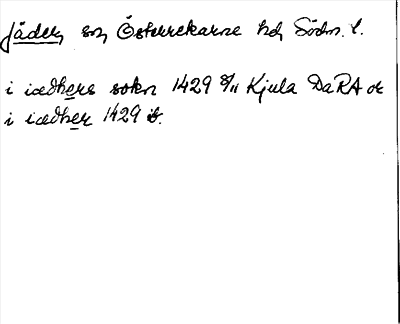 Jäder, sn, Österrekarne hd, Södm. l.
i iædhers sokn 1429 8/11 Kjula DaRA or
i iædher 1429 ib.